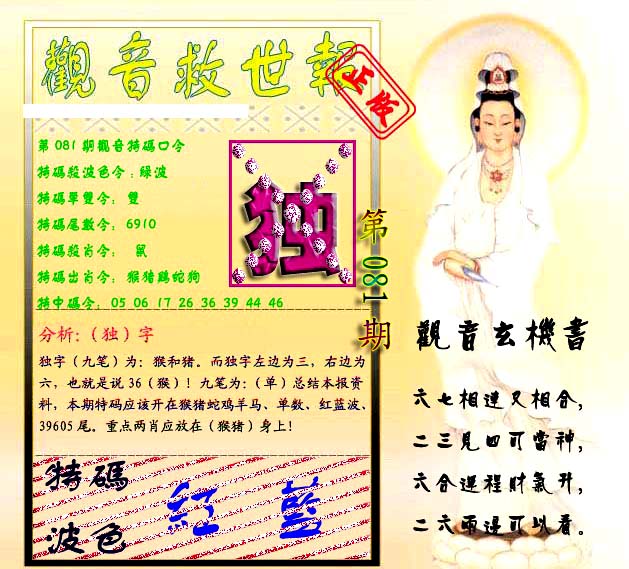 觀音救世報
正版
第081期觀音特碼口令
特碼殺波色令：綠波
特碼單雙令： 雙
特碼尾數令： 6910
特碼殺肖令： 鼠
特碼出肖令： 猴猪鷄蛇狗
特中碼令： 05 06 17 26 36 39 44 46
独
第081期
分析：（独）字
独字（九笔）为：猴和猪。而独字左边为三，右边为
六，也就是说 36（猴）！九笔为：（单）总结本报资
料，本期特码应该开在猴猪蛇鸡羊马、单数、红蓝波、
39605 尾。重点两肖应放在（猴猪）身上！
特碼
波色
紅 藍
觀音玄機書
六七相連又相合，
二三見四可當神，
六合運程財氣升，
二六兩邊可以看。